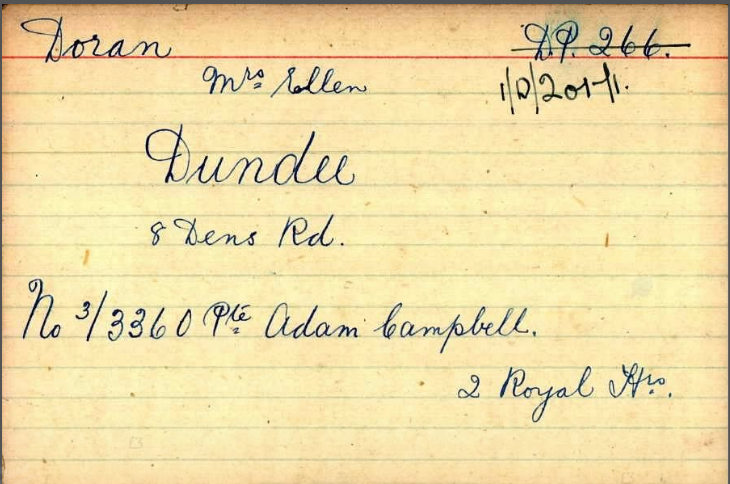 Doran DP. 266.
Mrs Ellen 1/D/201/1.
Dundee
8 Dens Rd.
No 3/3360 Pte Adam Campbell.
2 Royal Hrs.